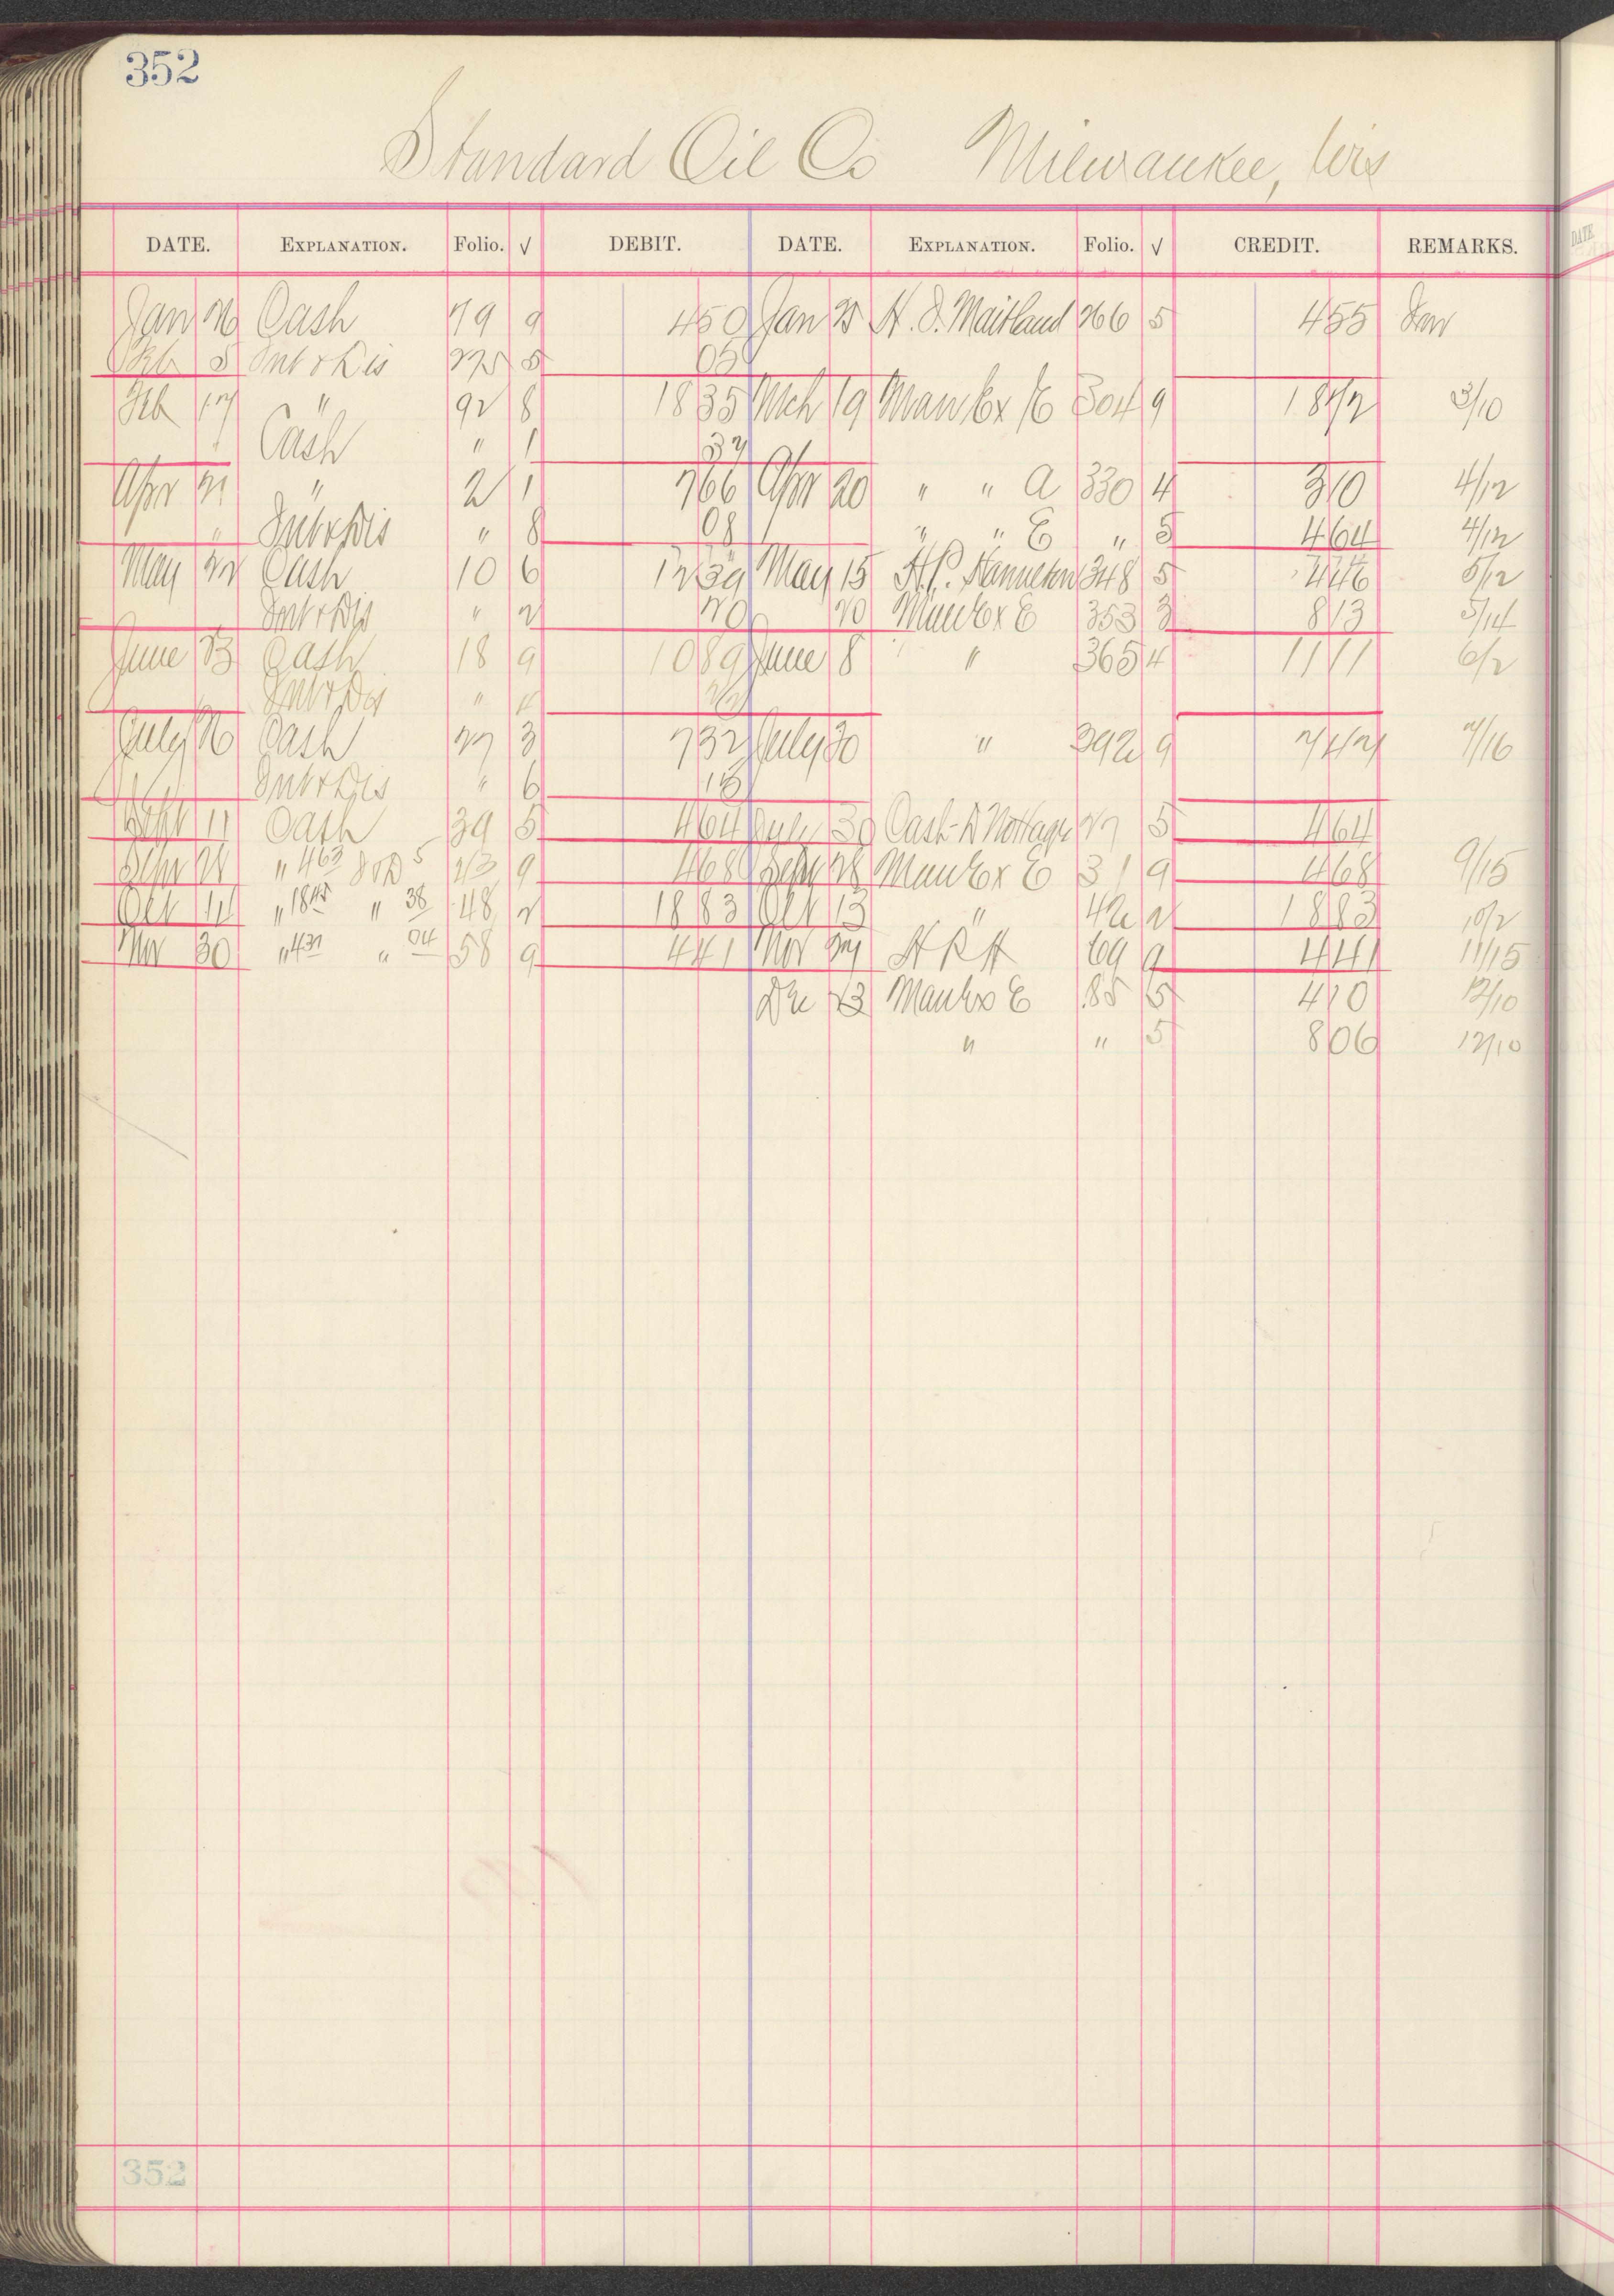 352
Standard Oil Co Milwaukee, Wis
DATE. EXPLANATION. Folio. √ DEBIT. DATE. EXPLANATION. Folio. √ CREDIT. REMARKS.
Jan 26 Cash 79 9 4 50 Jan 25 H. S. Maitland 266 5 4 55 Jan
Feb 5 Int & Dis 275 5 05
Feb 17 " 92 8 18 35 Mch 19 Man Ex E 304 9 18 72 3/10
" Cash " 1 37
Apr 21 " 2 1 7 66 Apr 20 " " A 330 4 3 10 4/12
" Int & Dis " 8 08 " " E " 5 4 64 4/12
May 22 Cash 10 6 12 39 May 15 348 5 4 46 5/12
Int & Dis " 2 20 20 Man Ex E 353 3 8 13 5/14
June 23 Cash 18 9 10 89 June 8 " 365 4 11 11 6/2
Int & Dis " 22
July 26 Cash 27 3 7 32 July 30 " 392 9 7 47 7/16
Int & Dis " 6 15
Sept 11 Cash 39 5 4 64 July 30 Cash 27 5 4 64
" 4 63 " 5 43 9 4 68 28 Man Ex E 31 9 4 68 9/15
Oct 14 " 18 45 " 38 48 2 18 83 Oct 13 " 42 2 18 83 10/2
Nov 30 " 4 37 " 04 58 9 4 41 Nov 27 H R H 69 9 4 41 11/15
Dec 23 Man Ex E 85 5 4 10 12/10
" " 5 8 06 12/10
352